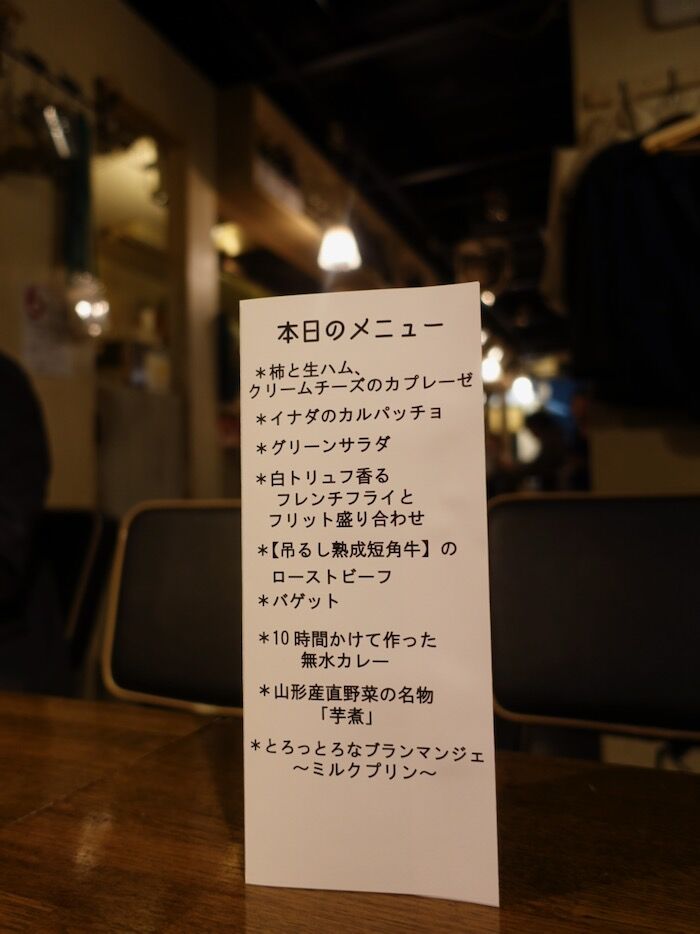 本日のメニュー
＊柿と生ハム、
クリームチーズのカプレーゼ
＊イナダのカルパッチョ
＊グリーンサラダ
＊白トリュフ香る
フレンチフライと
フリット盛り合わせ
＊【吊るし熟成短角牛】の
ローストビーフ
＊バゲット
＊10時間かけて作った
無水カレー
＊山形産直野菜の名物
「芋煮」
＊とろっとろなブランマンジェ
〜ミルクプリン〜